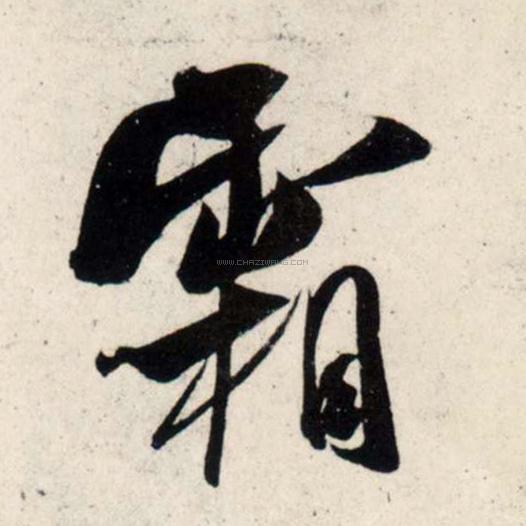 霜
WWW.CHAZIWANG.COM